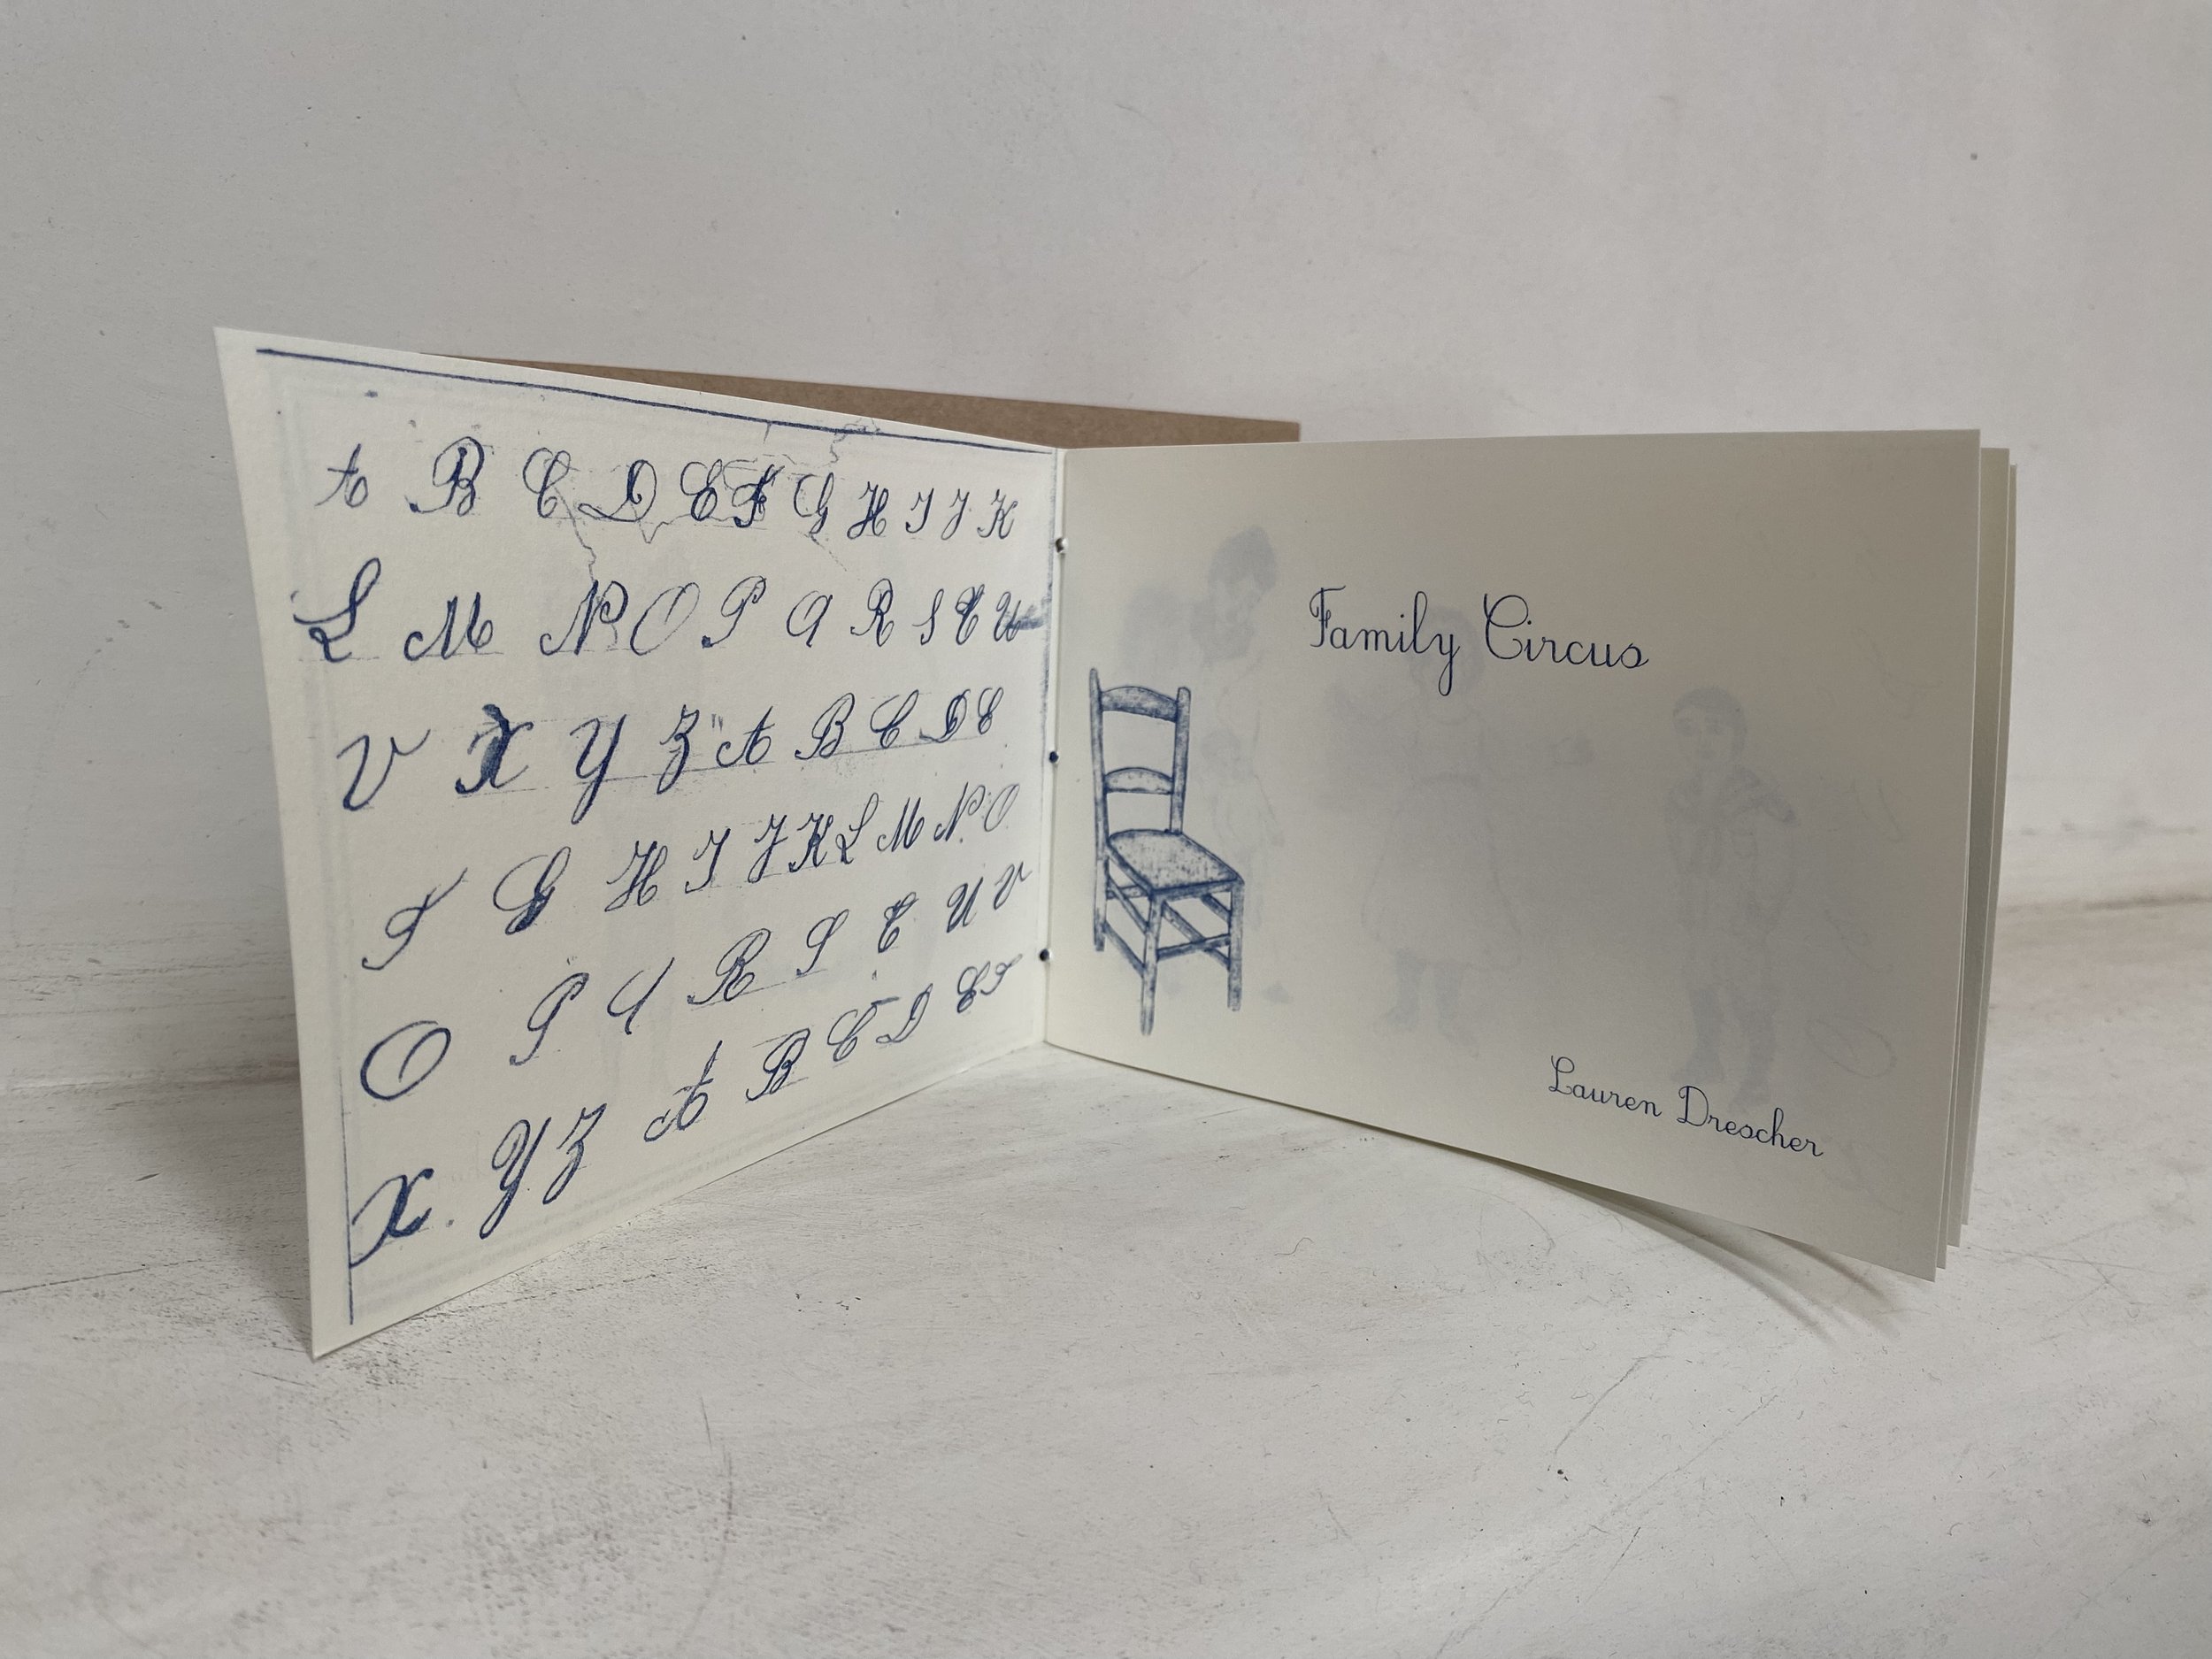 A B C D E F G H I J K
L M N P O P Q R S T U
V X Y Z "A B C D E
F G H I J K L M N O
O P Q R S T U V
X. Y Z A B C D E F
Family Circus
Lauren Drescher